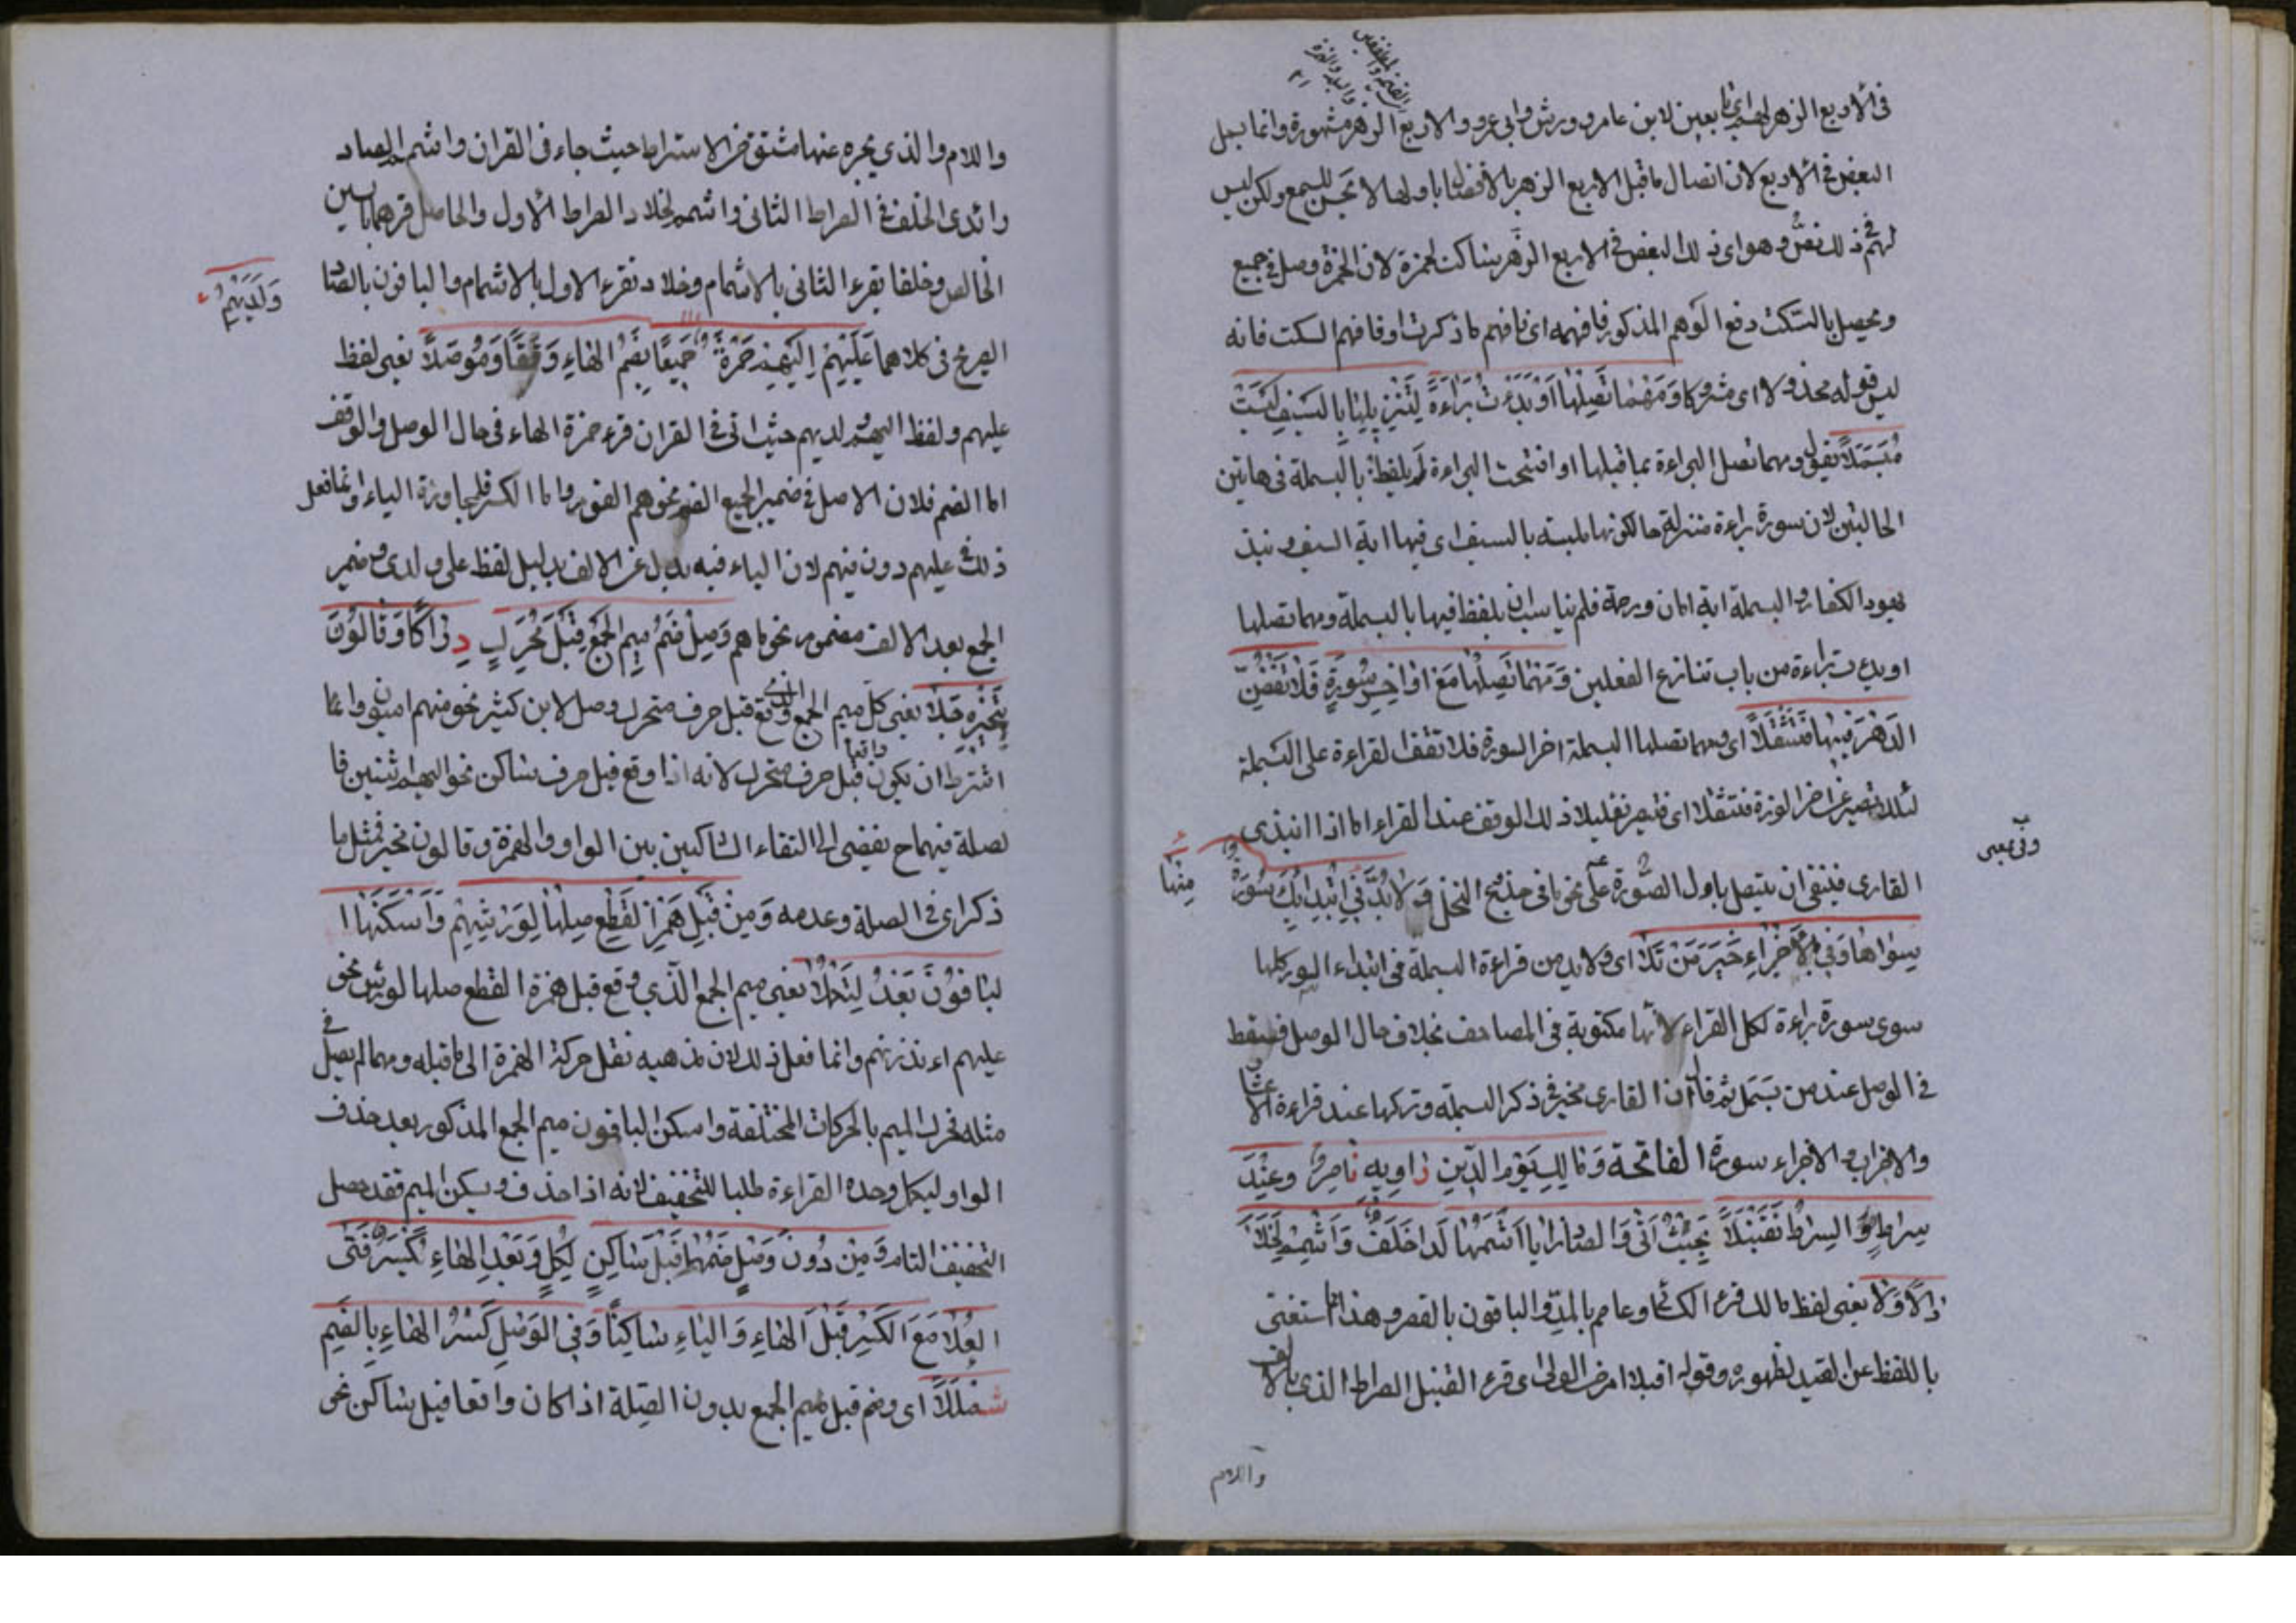 القيمة والمطففين
والبلد والهمزة
فى الاربع الزهر لهم اى تابعين لابن عامر وورش وابى عمرو والاربع الزهر مشهورة وانما بسمل
البعض فى الاربع لان اتصال ما قبل الاربع الزهر بالالفظ باولها لا يحسن للسمع ولكن ليس
لهم فى ذلك نص وهو اى ذلك البعض فى الاربع الزهر ساكت لحمزة لان الحمزة وصل فى جميع
ويحصل بالسكت دفع الوهم المذكور فافهمه اى فافهم ما ذكرت او فافهم السكت فانه
ليس قوله مخذولا اى متروكا وَمَهْمَا تَصِلْهَا اَوْ بَدَءْتَ بَرَاءَةً لِتَنْزِيلِهَا بِالسَّيْفِ لَسْتَ
مُبَسْمِلًا يقول ومهما تصل البراءة بما قبلها او افتتحت البراءة لم يلفظ بالبسملة فى هاتين
الحالتين لان سورة براءة منزلة حالكونها ملبسة بالسيف اى فيها اية السيف ونبذ
عهود الكفار والبسملة اية امان ورحمة فلم يناسب ان يلفظ فيها بالبسملة ومهما تصلها
او بدءت براءة من باب تنازع الفعلين وَمَهْمَا تَصِلْهَا مَعَ اَوَاخِرِ سُورَةٍ فَلَا تَقِفَنَّ
الدَّهْرَ فِيهَا فَتَثْقُلَا اى ومهما تصلها البسملة اخر السورة فلا تقف لقراءة على البسملة
لئلا تصير عن اخر السورة فتثقلا اى فتصير ثقيلا ذلك الوقف عند القراء اما اذا ابتدى
القارى فينبغى ان يتصل باول السورة على نحو ما فى جذع النخل وَلَا بُدَّ فِى ابْتِدَائِكَ سُورَةً
منها
وفى بمعنى
سِوَاهَا وَفِى الْاَجْزَاءِ خَيَّرَ مَنْ تَلَا اى ولا بد من قراءة البسملة فى ابتداء السور كلها
سوى سورة براءة لكل القراء لانها مكتوبة فى المصاحف بخلاف حال الوصل فيسقط
فى الوصل عند من بسمل ثم قال ان القارى مخير فى ذكر البسملة وتركها عند قراءة الاعشار
والاحزاب والاجزاء سورة الفاتحة وَمَالِكِ يَوْمِ الدِّينِ رَاوِيهِ نَاصِرٌ وَعِنْدَ
سِرَاطٍ وَالسِّرَاطَ لِقُنْبُلَا بِحَيْثُ اَتَى وَالصَّادَ زَايًا اَشِمَّهَا لَدَا خَلَفٍ وَاَشْمِمْ لِخَلَّادٍ
الْاَوَّلَا يعنى لفظ مالك قرء الكسائى وعاصم بالمد والباقون بالقصر وهذا مما استغنى
باللفظ عن القيد لظهوره وقوله اقبلا امر من الولى اى قرء القنبل الصراط الذى بالالف
واللام
واللام والذى يجره عنها مشتق من الاستراط حيث جاء فى القران واشم الصاد
زائدى الخلف فى الصراط الثانى واشمم لخلاد الصراط الاول والحاصل قرء هما بالسين
الخالص وخلفا يقرء الثانى بالاشمام وخلاد يقرء الاول بالاشمام والباقون بالصاد
وَلَدَيْهِمُ
الصريح فى كلاهما عَلَيْهِمْ اِلَيْهِمْ حَمْزَةُ جَمِيعًا بِضَمِّ الْهَاءِ وَقْفًا وَمَوْصَلًا يعنى لفظ
عليهم ولفظ اليهم ولديهم حيث اتى فى القران قرء حمزة الهاء فى حال الوصل والوقف
اما الضم فلان الاصل فى ضمير الجمع الضم نحو هم الفوز واما الكسر فلمجاورة الياء وانما فعل
ذلك فى عليهم دون فيهم لان الياء فيه بدل عن الالف بدليل لفظ على ولدى وضمير
الجمع بعد الالف مضموم نحو ما هم وَصِلْ ضَمَّ مِيمِ الْجَمْعِ قَبْلَ مُحَرَّكٍ دِرَاكًا وَقَالُونُ
بِتَخْيِيرِهِ جَلَا يعنى كل ميم الجمع الذى وقع قبل حرف متحرك وصل لابن كثير نحو منهم اميون وانما
اشترط ان يكون واقعا قبل حرف متحرك لانه اذا وقع قبل حرف ساكن نحو اليهم اثنين فا
لصلة فيهما ح يفضى الى التقاء الساكنين بين الواو والهمزة وقالون يخير فى مثل ما
ذكر اى فى الصلة وعدمه وَمِنْ قَبْلِ هَمْزِ الْقَطْعِ صِلْهَا لِوَرْشِهِمْ وَاَسْكَنَهَا ا
لْبَاقُونَ بَعْدُ لِتَكْمُلَا يعنى ميم الجمع الذى وقع قبل همزة القطع صلها لورش نحو
عليهم ءانذرتهم وانما فعل ذلك لان مذهبه نقل حركة الهمزة الى ما قبله ومهما لم يصل فى
مثله تحرك الميم بالحركات المختلفة واسكن الباقون ميم الجمع المذكور بعد حذف
الواو ليكمل وحده القراءة طلبا للتخفيف لانه اذا حذف وسكن الميم فقد حصل
التخفيف التام وَمِنْ دُونِ وَصْلٍ ضَمُّهَا قَبْلَ سَاكِنٍ لِكُلٍّ وَبَعْدَ الْهَاءِ كَسْرُ فَتَى
الْعَلَا مَعَ الْكَسْرِ قَبْلَ الْهَاءِ وَالْيَاءِ سَاكِنًا وَفِى الْوَصْلِ كَسْرُ الْهَاءِ بِالضَّمِّ
شَمْلَلَا اى وضم قبل ميم الجمع بدون الصلة اذا كان واقعا قبل ساكن نحو